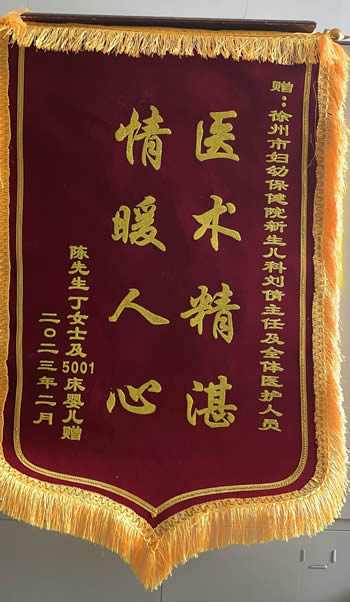 赠：徐州市妇幼保健院新生儿科刘倩主任及全体医护人员
医术精湛
情暖人心
陈先生丁女士及5001床婴儿赠
二〇二三年二月